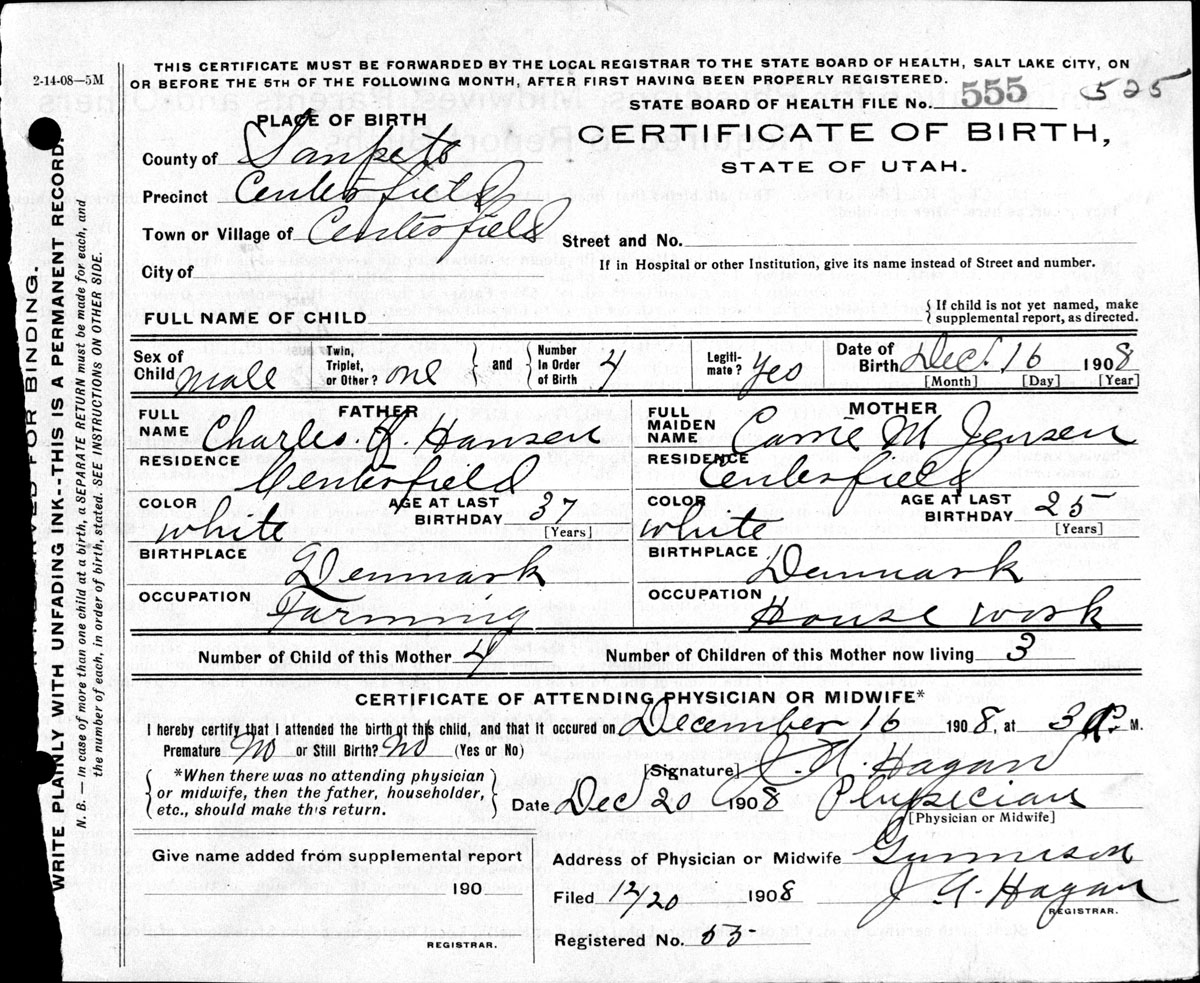 2-14-08—5M
THIS CERTIFICATE MUST BE FORWARDED BY THE LOCAL REGISTRAR TO THE STATE BOARD OF HEALTH, SALT LAKE CITY, ON
OR BEFORE THE 5TH OF THE FOLLOWING MONTH, AFTER FIRST HAVING BEEN PROPERLY REGISTERED.
STATE BOARD OF HEALTH FILE No. 555 525
PLACE OF BIRTH
CERTIFICATE OF BIRTH,
STATE OF UTAH.
County of Sanpete
Precinct Centerfield
Town or Village of Centerfield
Street and No.
City of
If in Hospital or other Institution, give its name instead of Street and number.
FULL NAME OF CHILD
{ If child is not yet named, make
supplemental report, as directed.
Sex of Child male
Twin, Triplet, or Other? one } and { Number In Order of Birth 4
Legitimate? Yes
Date of Birth Dec. 16 1908
[Month] [Day] [Year]
FATHER
FULL NAME Charles. H. Hansen
RESIDENCE Centerfield
COLOR white
AGE AT LAST BIRTHDAY 37
[Years]
BIRTHPLACE Denmark
OCCUPATION Farming
MOTHER
FULL MAIDEN NAME Carrie M Jensen
RESIDENCE Centerfield
COLOR white
AGE AT LAST BIRTHDAY 25
[Years]
BIRTHPLACE Denmark
OCCUPATION House work
Number of Child of this Mother 4
Number of Children of this Mother now living 3
CERTIFICATE OF ATTENDING PHYSICIAN OR MIDWIFE*
I hereby certify that I attended the birth of this child, and that it occured on December 16 1908, at 3 P. M.
Premature No or Still Birth? No (Yes or No)
{ *When there was no attending physician
or midwife, then the father, householder,
etc., should make this return. }
[Signature] J. A. Hagan
Date Dec 20 1908 Physician
[Physician or Midwife]
Give name added from supplemental report
190
REGISTRAR.
Address of Physician or Midwife Gunnison
Filed 12/20 1908 J A. Hagan
REGISTRAR.
Registered No. 53
WRITE PLAINLY WITH UNFADING INK--THIS IS A PERMANENT RECORD.
N. B. — In case of more than one child at a birth, a SEPARATE RETURN must be made for each, and
the number of each, in order of birth, stated. SEE INSTRUCTIONS ON OTHER SIDE.
FOR BINDING.